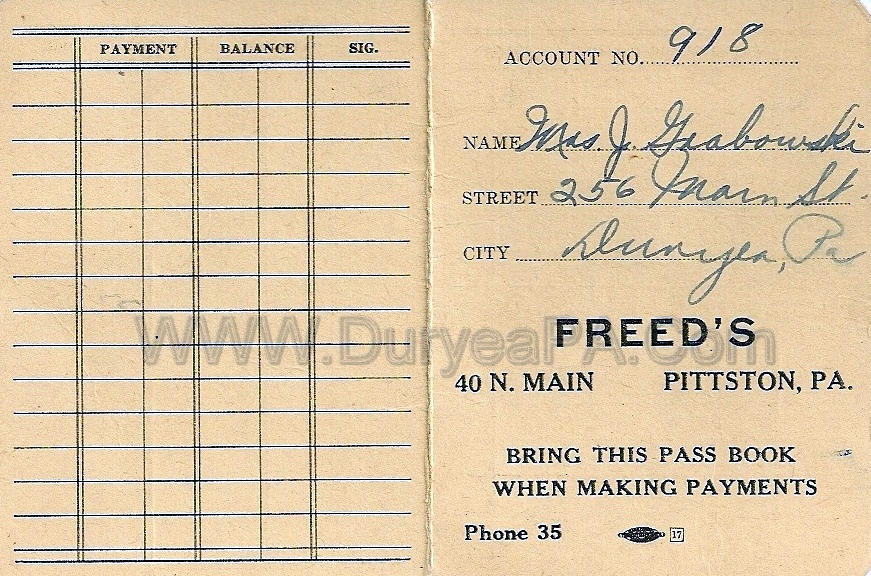 PAYMENT BALANCE SIG.
ACCOUNT NO. 918
NAME Mrs. J. Grabowski
STREET 256 Main St.
CITY Duryea, Pa
WWW.DuryeaPA.com
FREED'S
40 N. MAIN PITTSTON, PA.
BRING THIS PASS BOOK
WHEN MAKING PAYMENTS
Phone 35 17